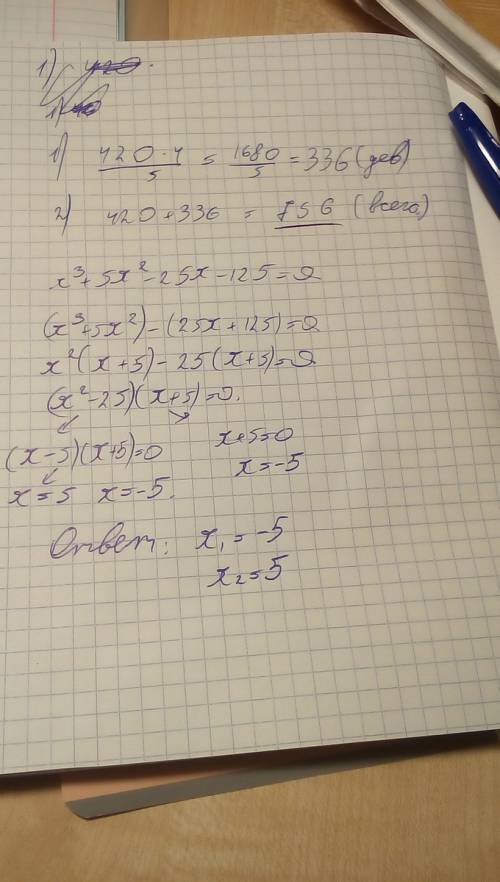 1) 420.
1) 40
1) 420 · 4 / 5 = 1680 / 5 = 336 (дев)
2) 420 + 336 = 756 (всего)
x³ + 5x² - 25x - 125 = 0
(x³ + 5x²) - (25x + 125) = 0
x²(x + 5) - 25(x + 5) = 0
(x² - 25)(x + 5) = 0.
(x - 5)(x + 5) = 0 x + 5 = 0
x = 5 x = -5. x = -5
Ответ: x₁ = -5
x₂ = 5